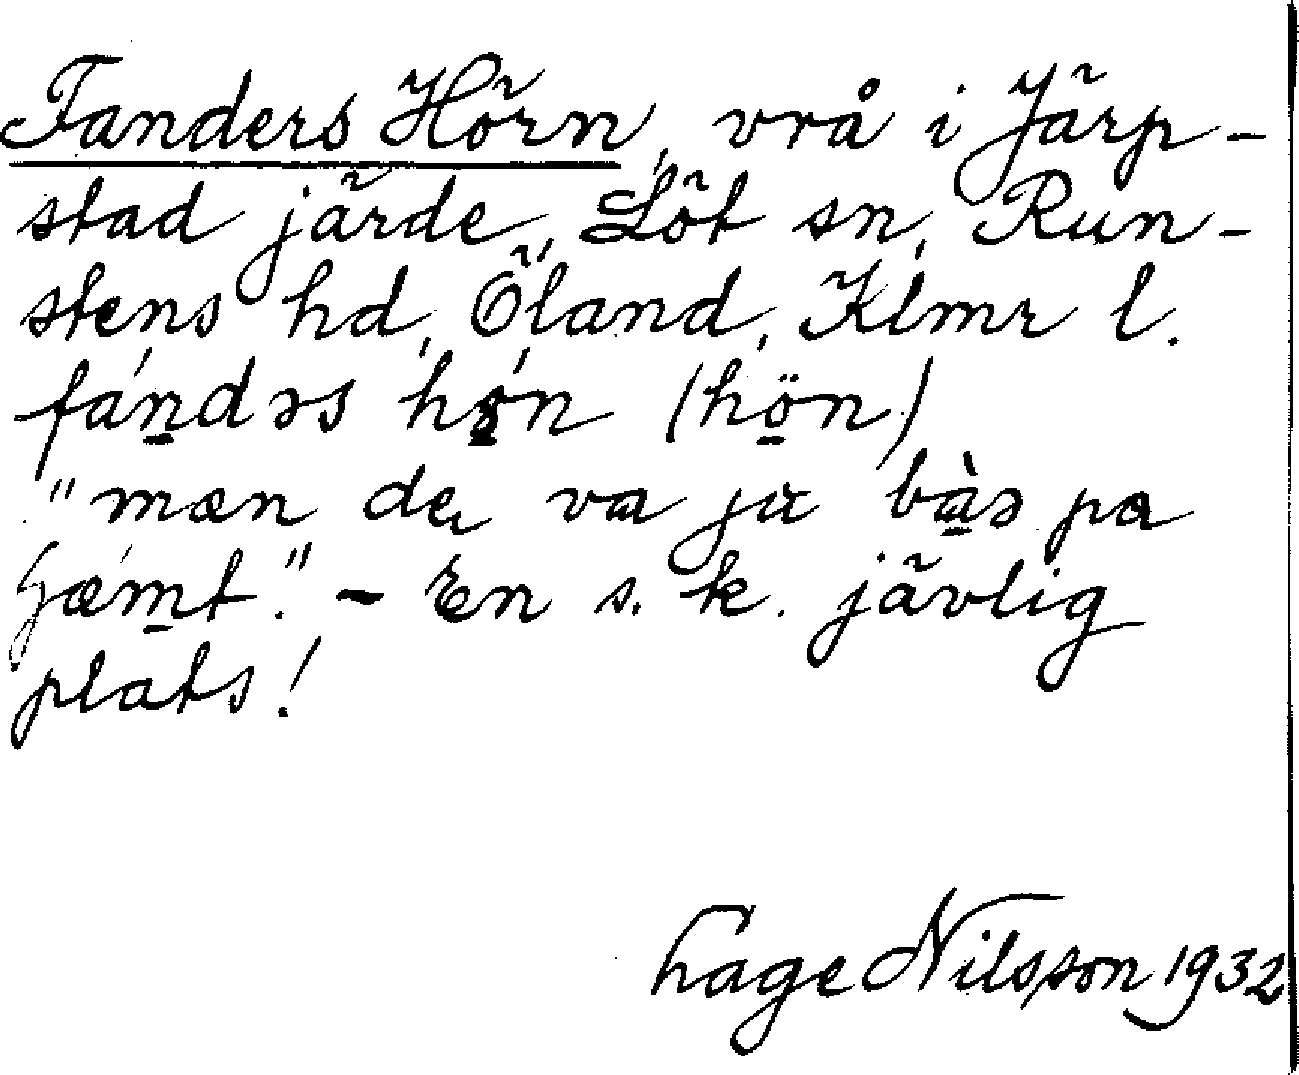 Fanders Hörn, vrå i Järp-
stad järde, Löt sn, Run-
stens hd, Öland, Klmr l.
fan̠dəs hön (hö̠n)
"mæn de va ja bà̠s pa
jæm̠t." - En s. k. jävlig
plats!
Hage Nilsson 1932